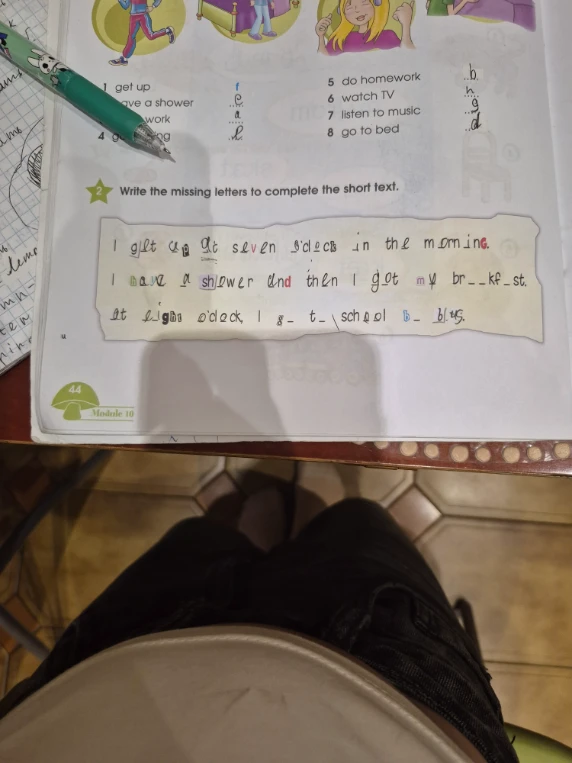 1 get up f
ave a shower e
work a
4 g ng e
5 do homework b
6 watch TV h
7 listen to music g
8 go to bed d
2 Write the missing letters to complete the short text.
I get up at seven o'clock in the morning.
I have a shower and then I get my br__kf_st.
At eight o'clock, I g_ t_ school b_ bus.
44
Module 10